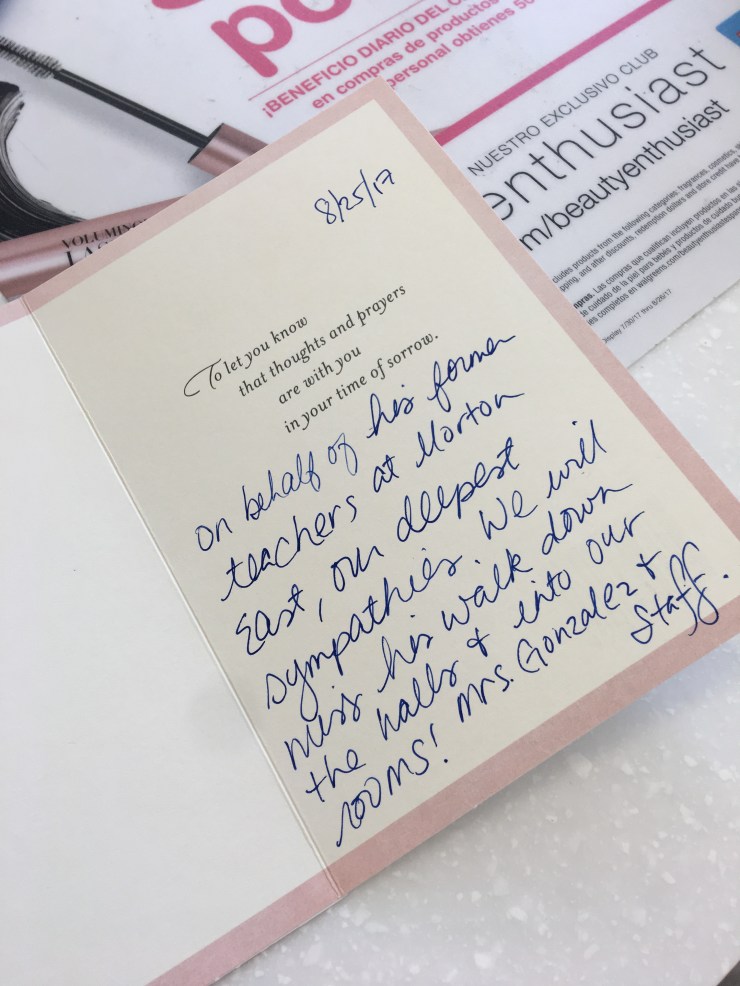 po
¡BENEFICIO DIARIO DEL
en compras de productos
personal obtienes
NUESTRO EXCLUSIVO CLUB
enthusiast
m/beautyenthusiast
8/25/17
To let you know
that thoughts and prayers
are with you
in your time of sorrow.
on behalf of his former
teachers at Morton
East, our deepest
sympathies. We will
miss his walk down
the halls & into our
rooms! Mrs. Gonzalez &
Staff.